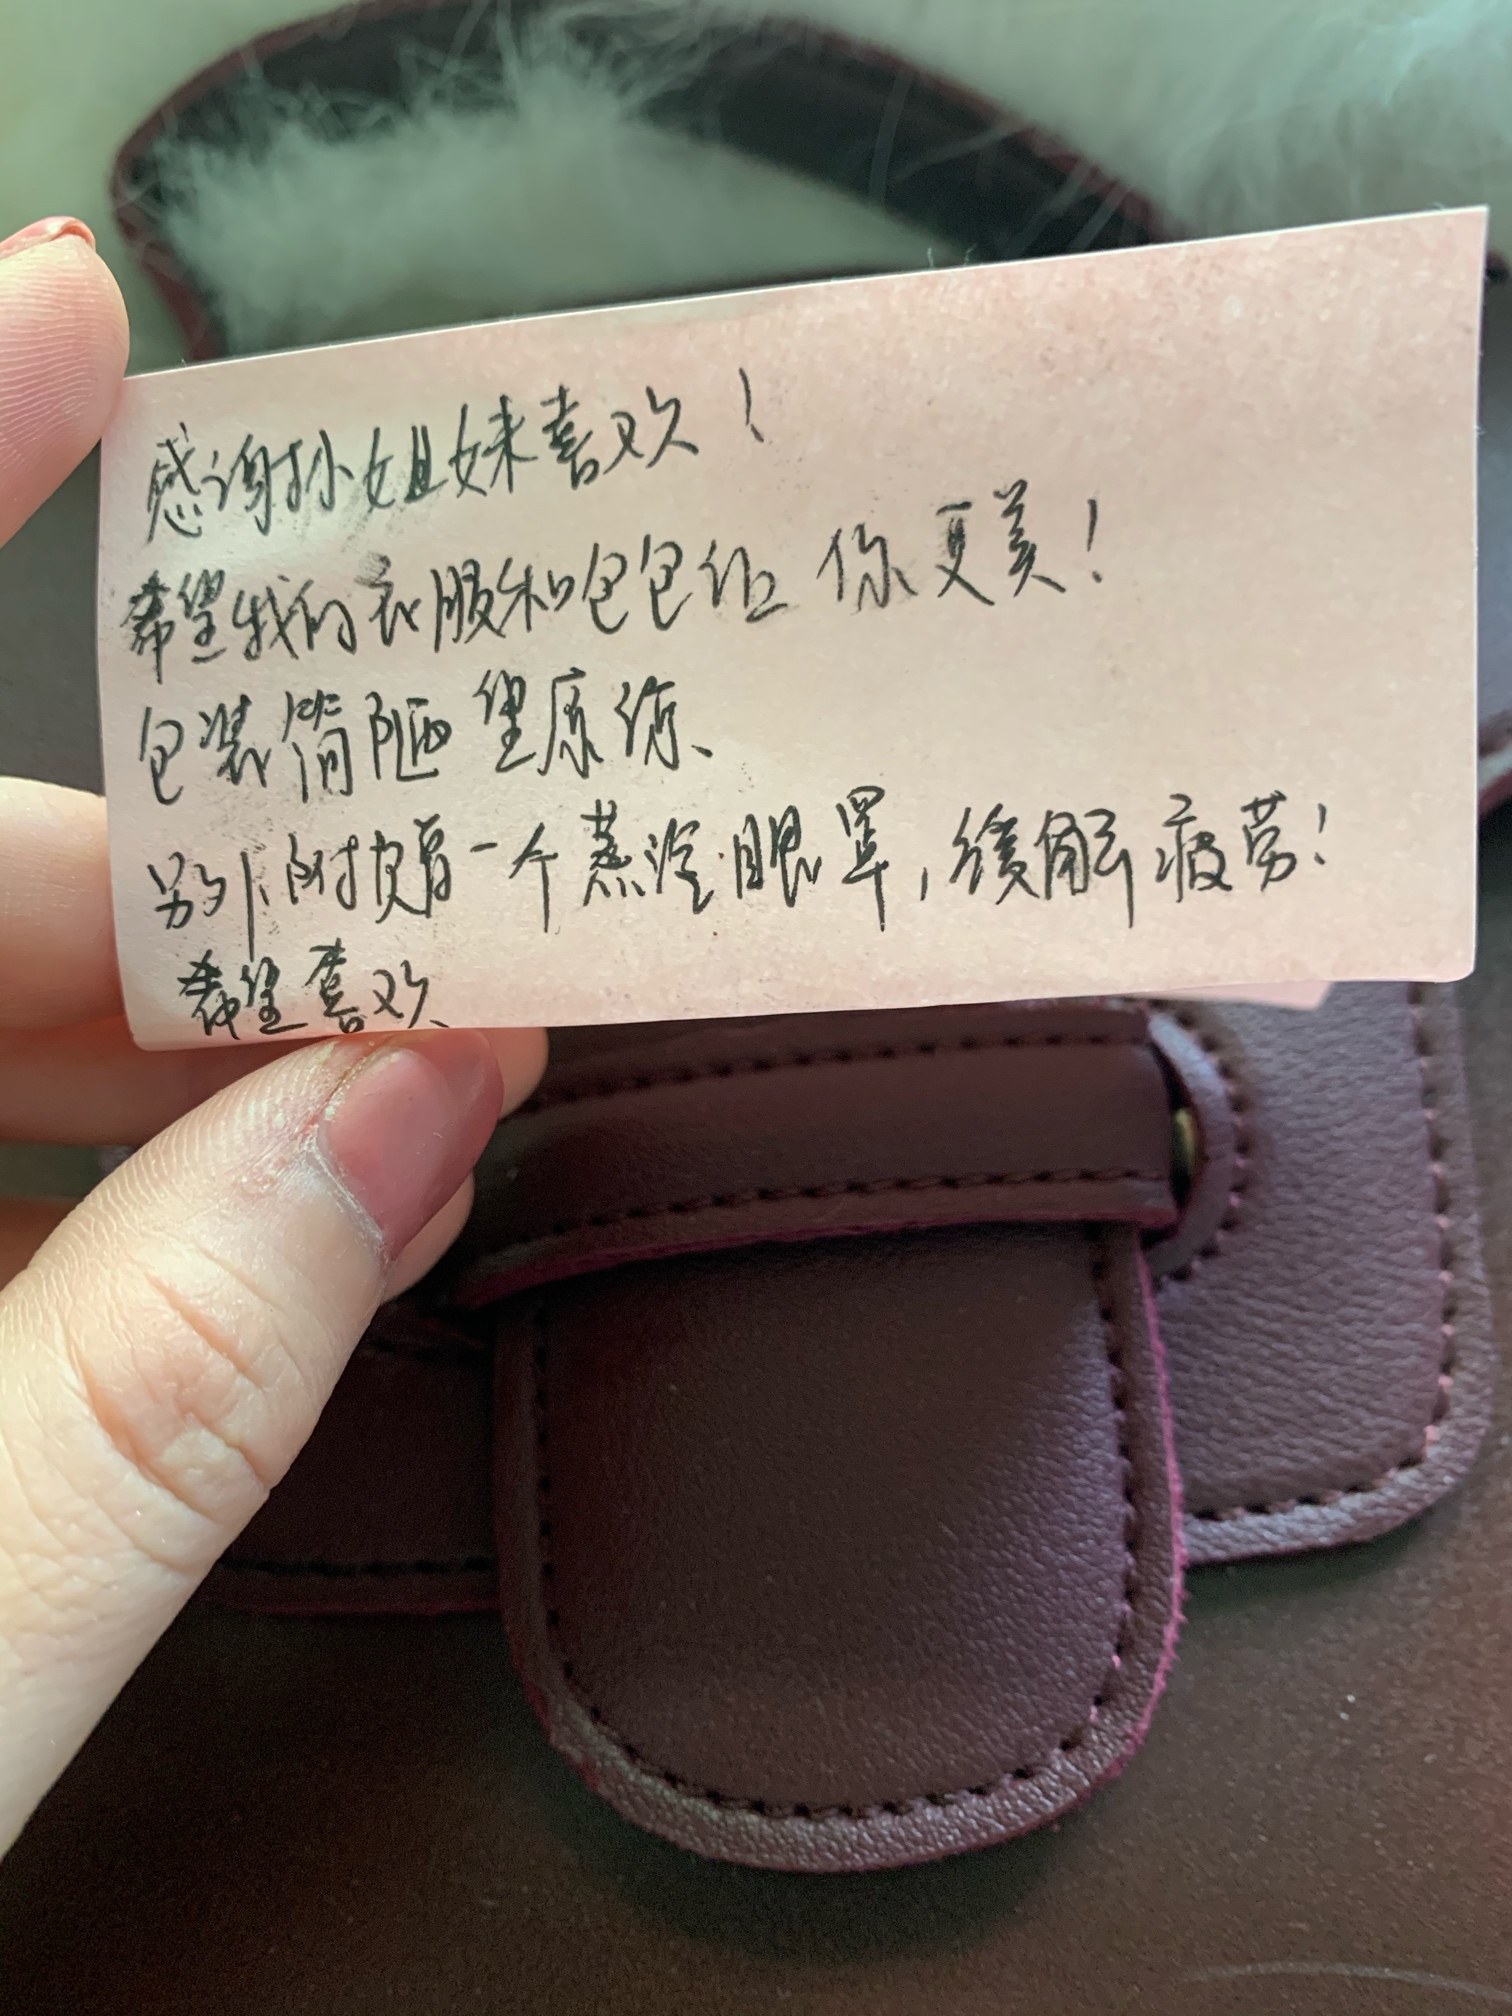 感谢孙姐妹喜欢！
希望我的衣服和包包让你更美！
包装简陋望原谅、
另外附赠有一个蒸汽眼罩，缓解疲劳！
希望喜欢